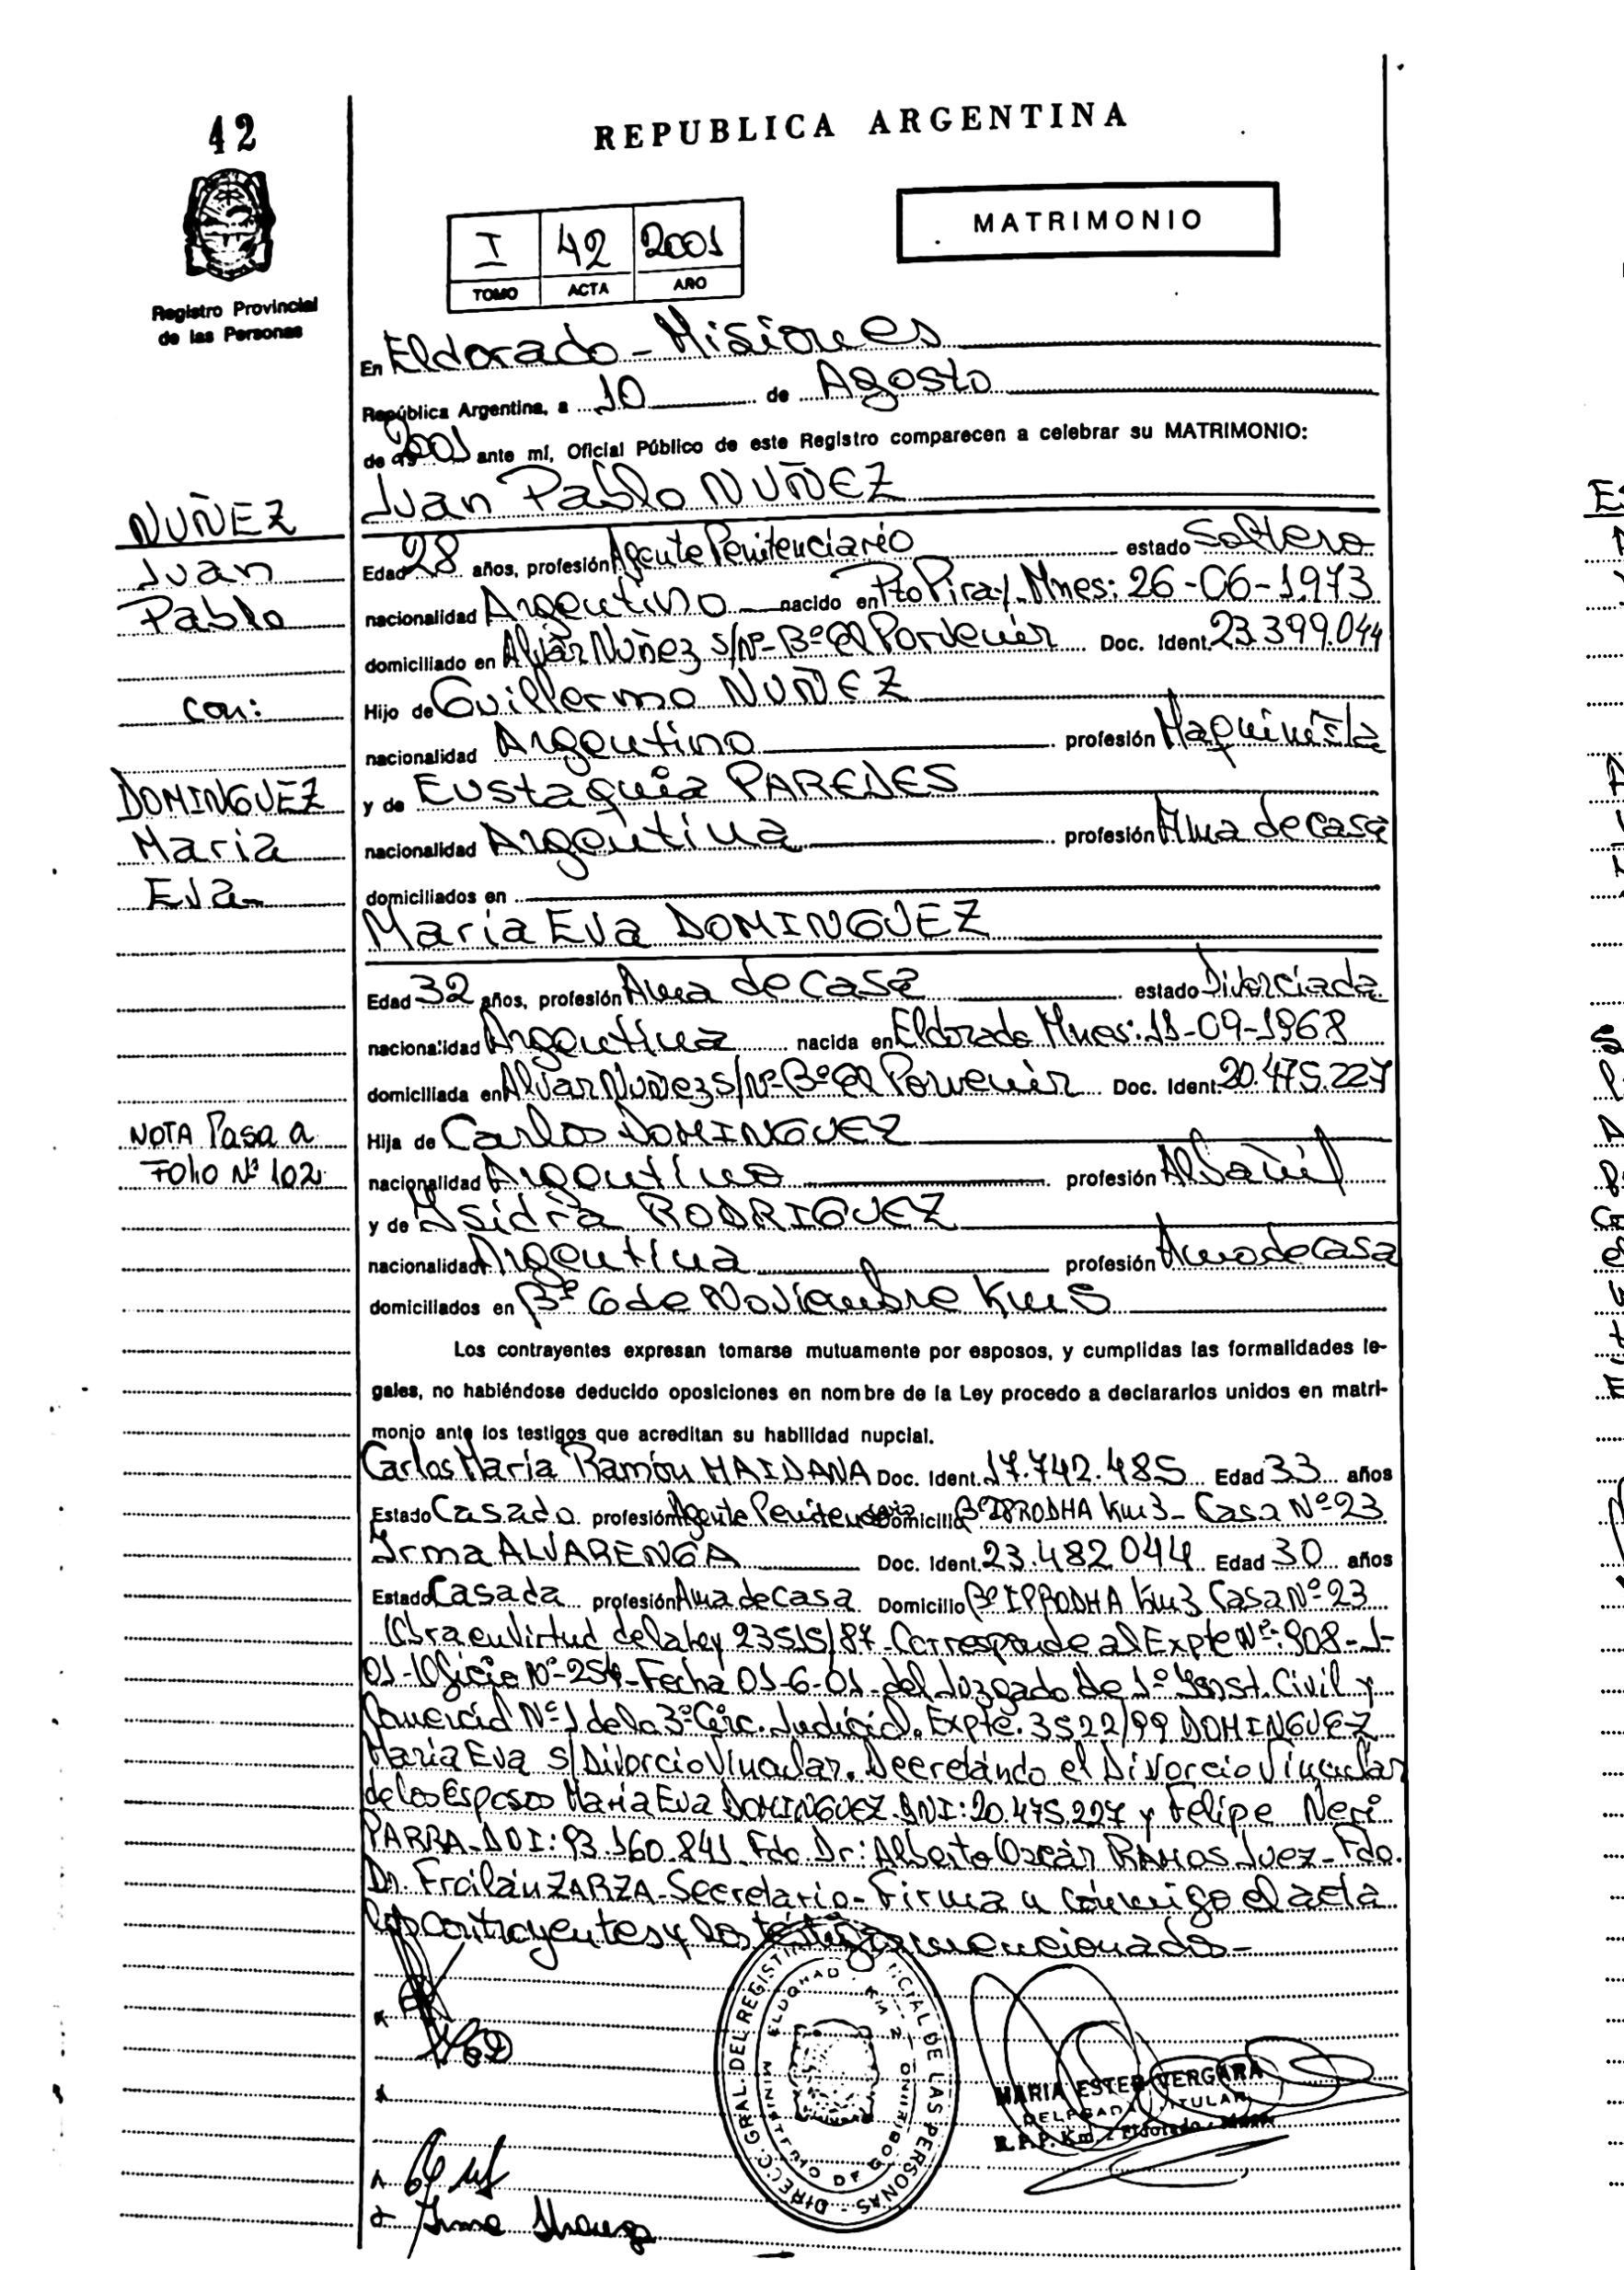 42
REPUBLICA ARGENTINA
MATRIMONIO
I 42 2001
TOMO ACTA AÑO
Registro Provincial
de las Personas
En Eldorado - Misiones
República Argentina, a 10 de Agosto
de 2001 ante mí, Oficial Público de este Registro comparecen a celebrar su MATRIMONIO:
Juan Pablo NUÑEZ
NUÑEZ
Juan
Pablo
con:
DOMINGUEZ
Maria
Eva
Edad 28 años, profesión Agente Penitenciario estado Soltero
nacionalidad Argentino nacido en Pto Piray. Mnes: 26-06-1973
domiciliado en Alvar Nuñez s/Nº- Bº El Porvenir Doc. Ident. 23.399.044
Hijo de Guillermo NUÑEZ
nacionalidad Argentino profesión Maquinista
y de Eustaquia PAREDES
nacionalidad Argentina profesión Ama de casa
domiciliados en
Maria Eva DOMINGUEZ
Edad 32 años, profesión Ama de casa estado Divorciada
nacionalidad Argentina nacida en Eldorado Mnes: 11-09-1968
domiciliada en Alvar Nuñez s/Nº- Bº El Porvenir Doc. Ident. 20.475.227
NOTA Pasa a
Folio Nº 102
Hija de Carlos DOMINGUEZ
nacionalidad Argentino profesión Albañil
y de Isidra RODRIGUEZ
nacionalidad Argentina profesión Ama de casa
domiciliados en Bº 6 de Noviembre Km 5
Los contrayentes expresan tomarse mutuamente por esposos, y cumplidas las formalidades le-
gales, no habiéndose deducido oposiciones en nombre de la Ley procedo a declararlos unidos en matri-
monio ante los testigos que acreditan su habilidad nupcial.
Carlos Maria Ramón MAIDANA Doc. Ident. 17.742.485 Edad 33 años
Estado Casado profesión Agente Penitenciario Domicilio Bº IPRODHA Km 3 - Casa Nº 23
Irma ALVARENGA Doc. Ident. 23.482.044 Edad 30 años
Estado Casada profesión Ama de Casa Domicilio Bº IPRODHA Km 3 Casa Nº 23
Obra en Virtud de la Ley 23515/87 - Corresponde al Expte Nº: 908-1-
01-Oficio Nº-254-Fecha 01-6-01-del Juzgado de 1º Inst. Civil y
Comercial Nº 1 de la 3º Circ. Judicial. Expte. 3522/99 DOMINGUEZ
Maria Eva s/Divorcio Vincular. Decretándo el Divorcio Vincular
de los Esposos Maria Eva DOMINGUEZ. DNI: 20.475.227 y Felipe Neri
PARRA-DDI: 93.160.841. Fdo. Dr: Alberto Oscár RAMOS Juez-Fdo.
Dr. Froilán ZARZA-Secretario-Firma n cónmigo el acta
los contrayentes y los testigos mencionados-
DIRECC. GRAL DEL REGISTRO PROVINCIAL DE LAS PERSONAS
MINISTERIO DE GOBIERNO
MARIA ESTER VERGARA
DELEGADA TITULAR
R.P.P. Km. Eldorado
Irma